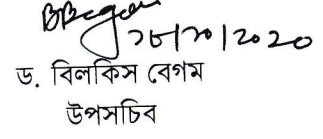 BBegum
২৮/১০/২০২০
ড. বিলকিস বেগম
উপসচিব